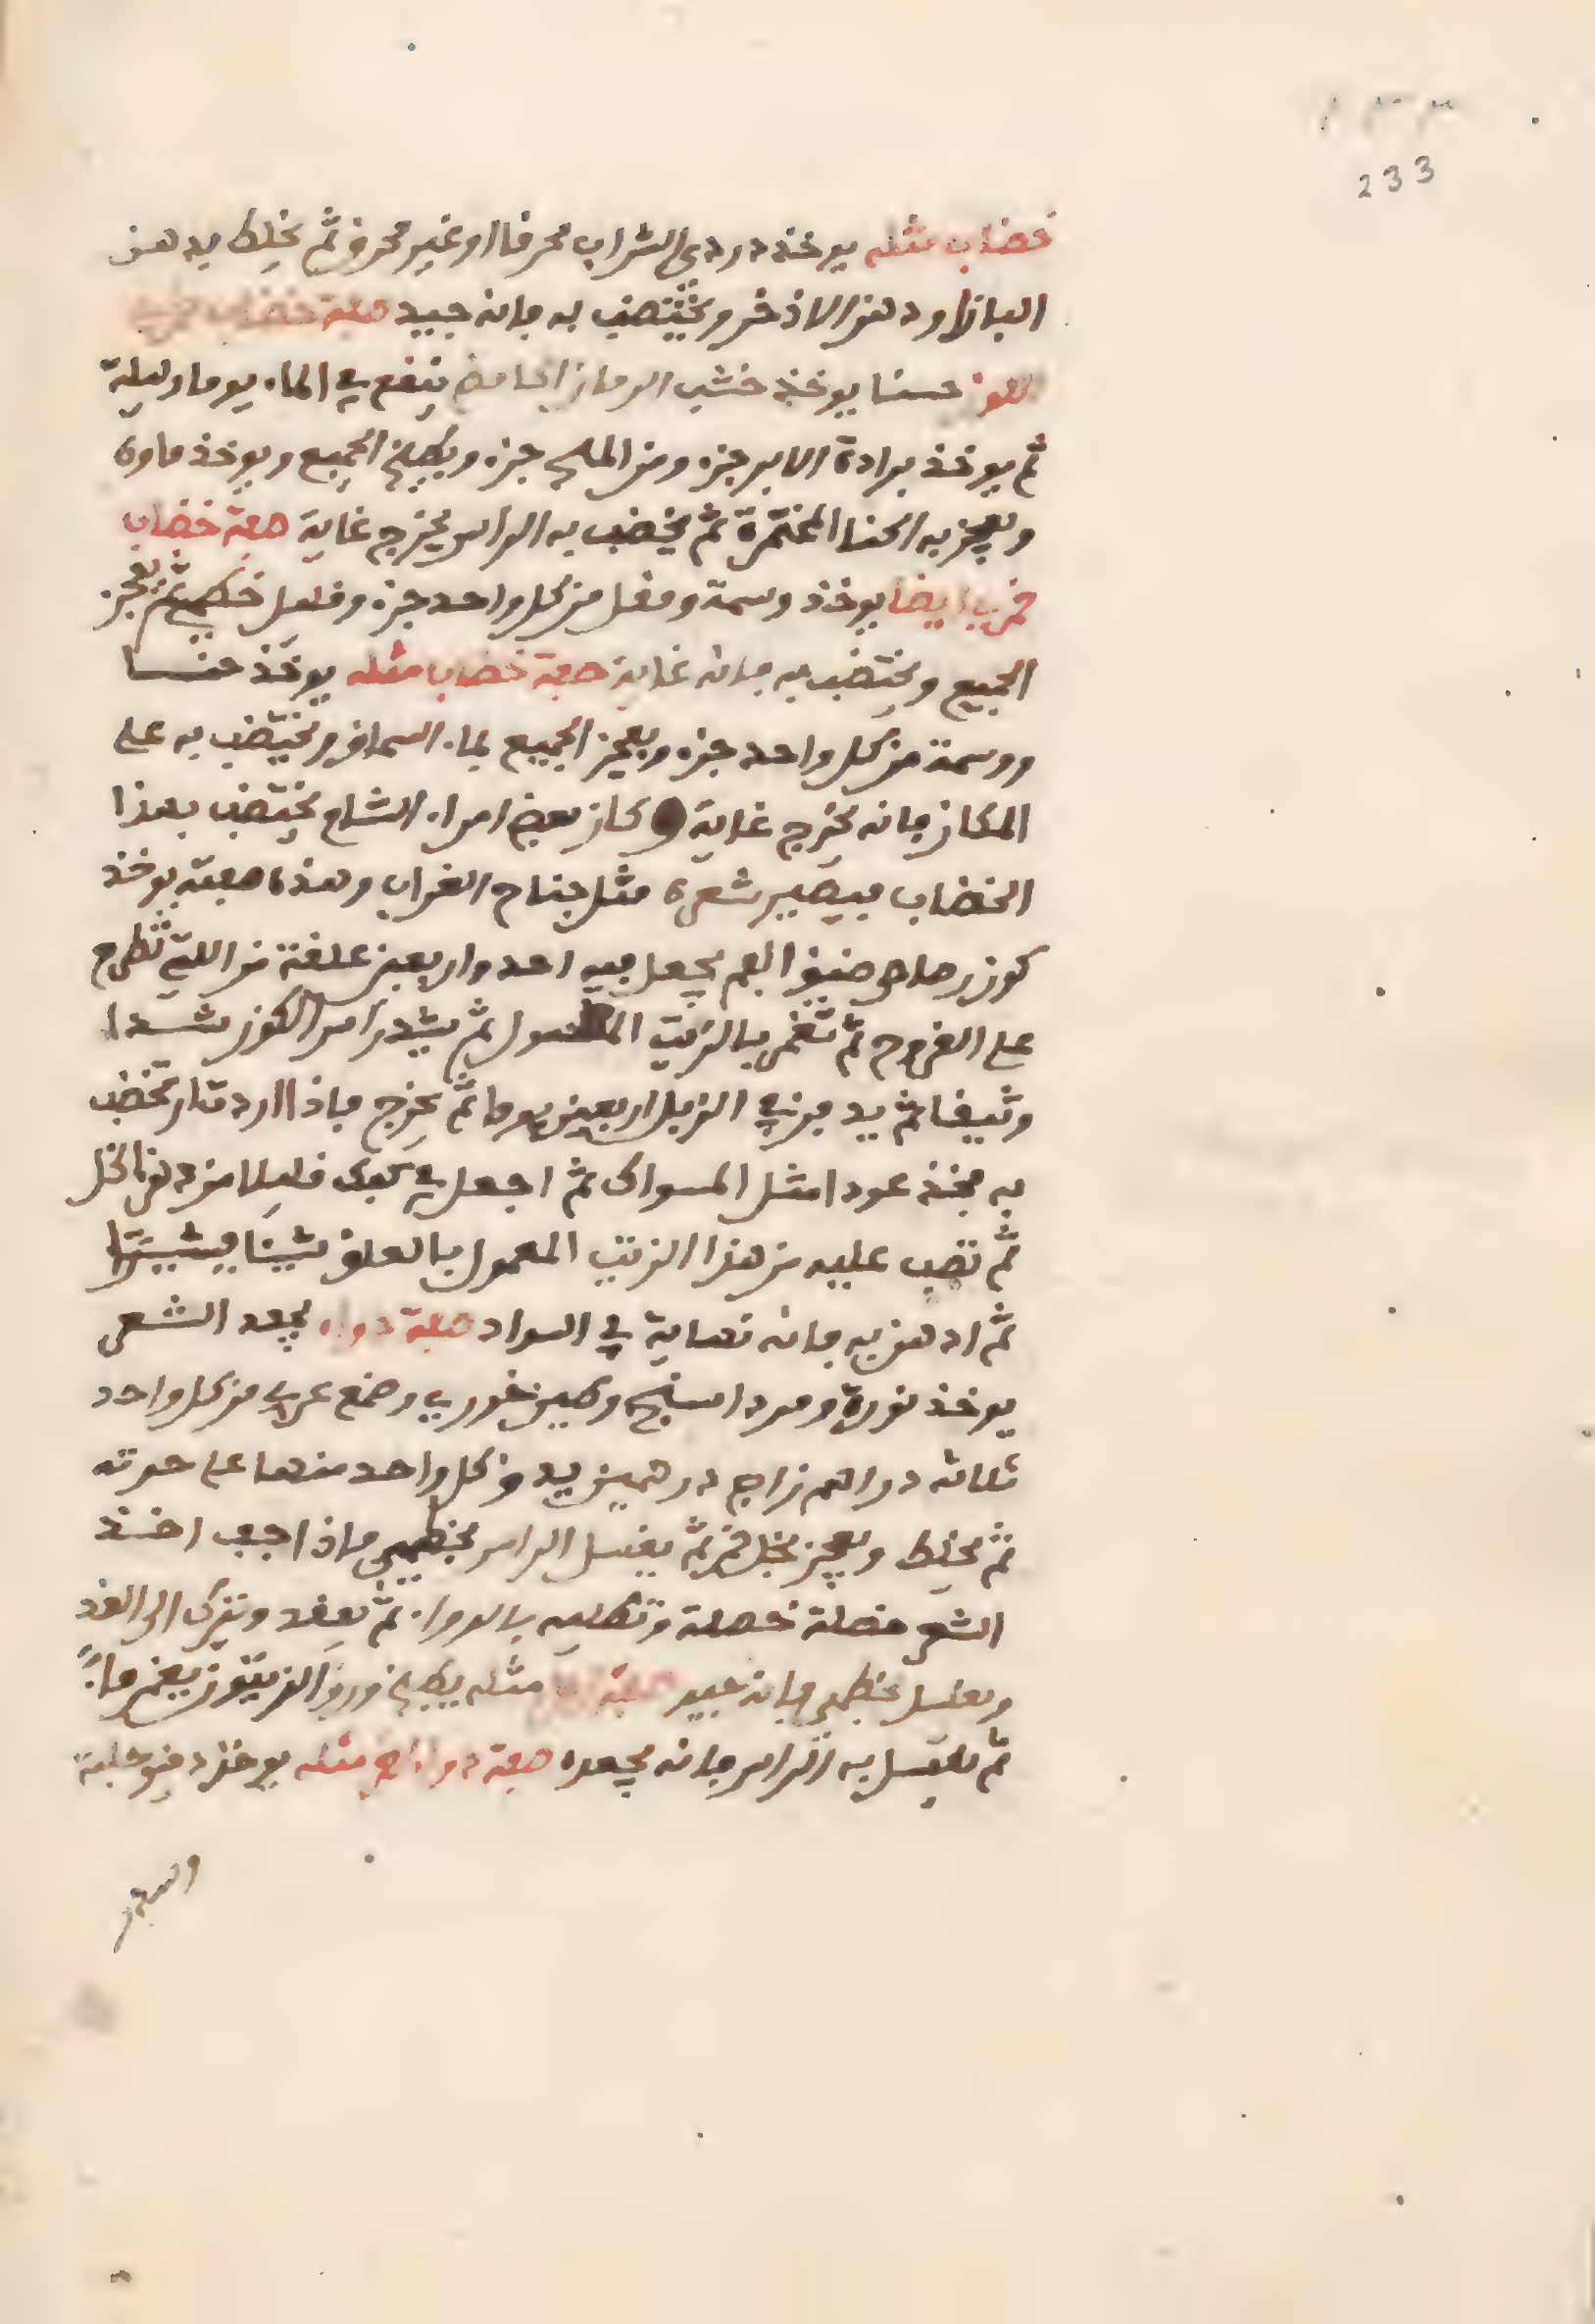 ٢٣٣
233
خضاب مثله يوخذ دردي الشراب محرقا او غير محرق ثم يخلط بدهن
البان او دهن الاذخر ويختضب به فانه جيد صفة خضاب
اللون حسنا يوخذ خشب الرمان الحامض ينقع في الماء يوما وليلة
ثم يوخذ برادة الابر جزء ومن الملح جزء ويطبخ الجميع ويوخذ ماوه
ويعجن به الحنا المختمرة ثم يخضب به الراس يخرج غاية صفة خضاب
ايضا يوخذ وسمة ومغل من كل واحد جزء وقليل خطمي ثم يعجن
الجميع ويختضب به فانه غاية صفة خضاب مثله يوخذ حنا
ووسمة من كل واحد جزء ويعجن الجميع بماء السماق ويختضب به على
المكان فانه يخرج غاية وكان بعض امراء الشام يختضب بهذا
الخضاب فيصير شعره مثل جناح الغراب وهذه صفته يوخذ
كوز رصاص ضيق الفم يجعل فيه احد واربعين علقة من اللتي تطرح
على القروح ثم تغمر بالزيت المغسول ثم يشد راس الكوز شدا
وثيقا ثم يدفن في الزبل اربعين يوما ثم يخرج فاذا اردت ان تخضب
به فخذ عودا مثل المسواك ثم اجعل في كفك قليلا من دهن الخل
ثم تصب عليه من هذا الزيت المعمول بالعلق شيئا فشيئا
ثم ادهن به فانه نهاية في السواد صفة دواء يجعد الشعر
يوخذ نورة ومرداسنج وطين خوري وصمغ عربي من كل واحد
ثلاثه دراهم زاج درهمين يدق كل واحد منها على حدته
ثم يخلط ويعجن بخل خمر ثم يغسل الراس بخطمي فاذا اجف اخذ
الشعر خصلة خصلة وتطليه بالدواء ثم يعقد ويترك الى الغد
ويغسل بخطمي فانه جيد صفة مثله يطبخ ورق الزيتون يعني ماءً
ثم يغسل به الراس فانه يجعده صفة دواء اخر مثله يوخذ دقيق حلبة
والسدر